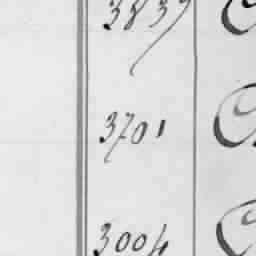 3839
3701
3004